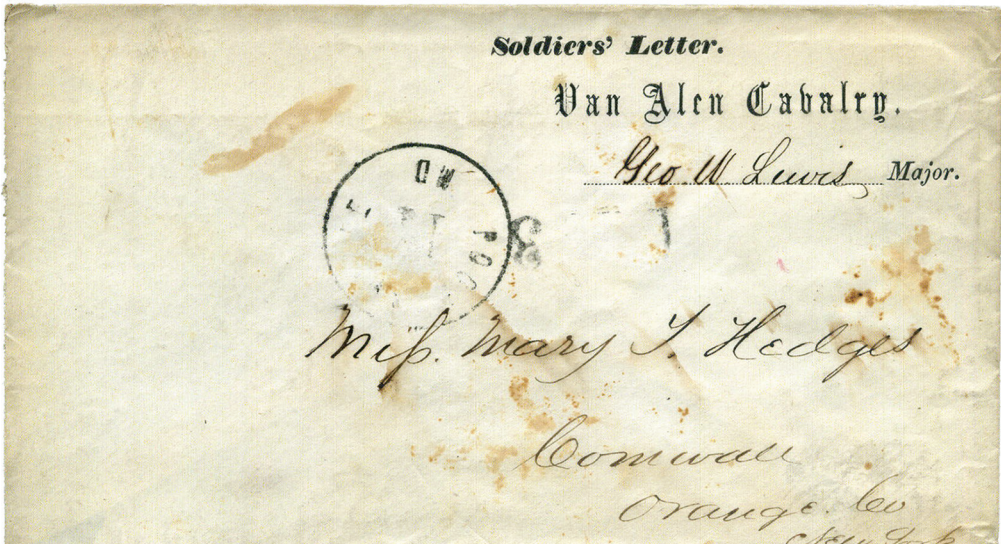 Soldiers' Letter.
Van Alen Cavalry.
Geo. W Lewis Major.
MD
3
Miss. Mary T. Hedges
Cornwall
Orange. Co
New York